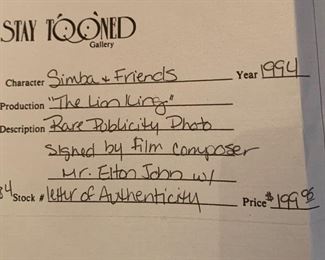 STAY TOONED
Gallery
Character Simba & Friends Year 1994
Production "The Lion King"
Description Rare Publicity Photo
signed by film composer
Mr. Elton John w/
84 Stock # letter of Authenticity Price $199.95